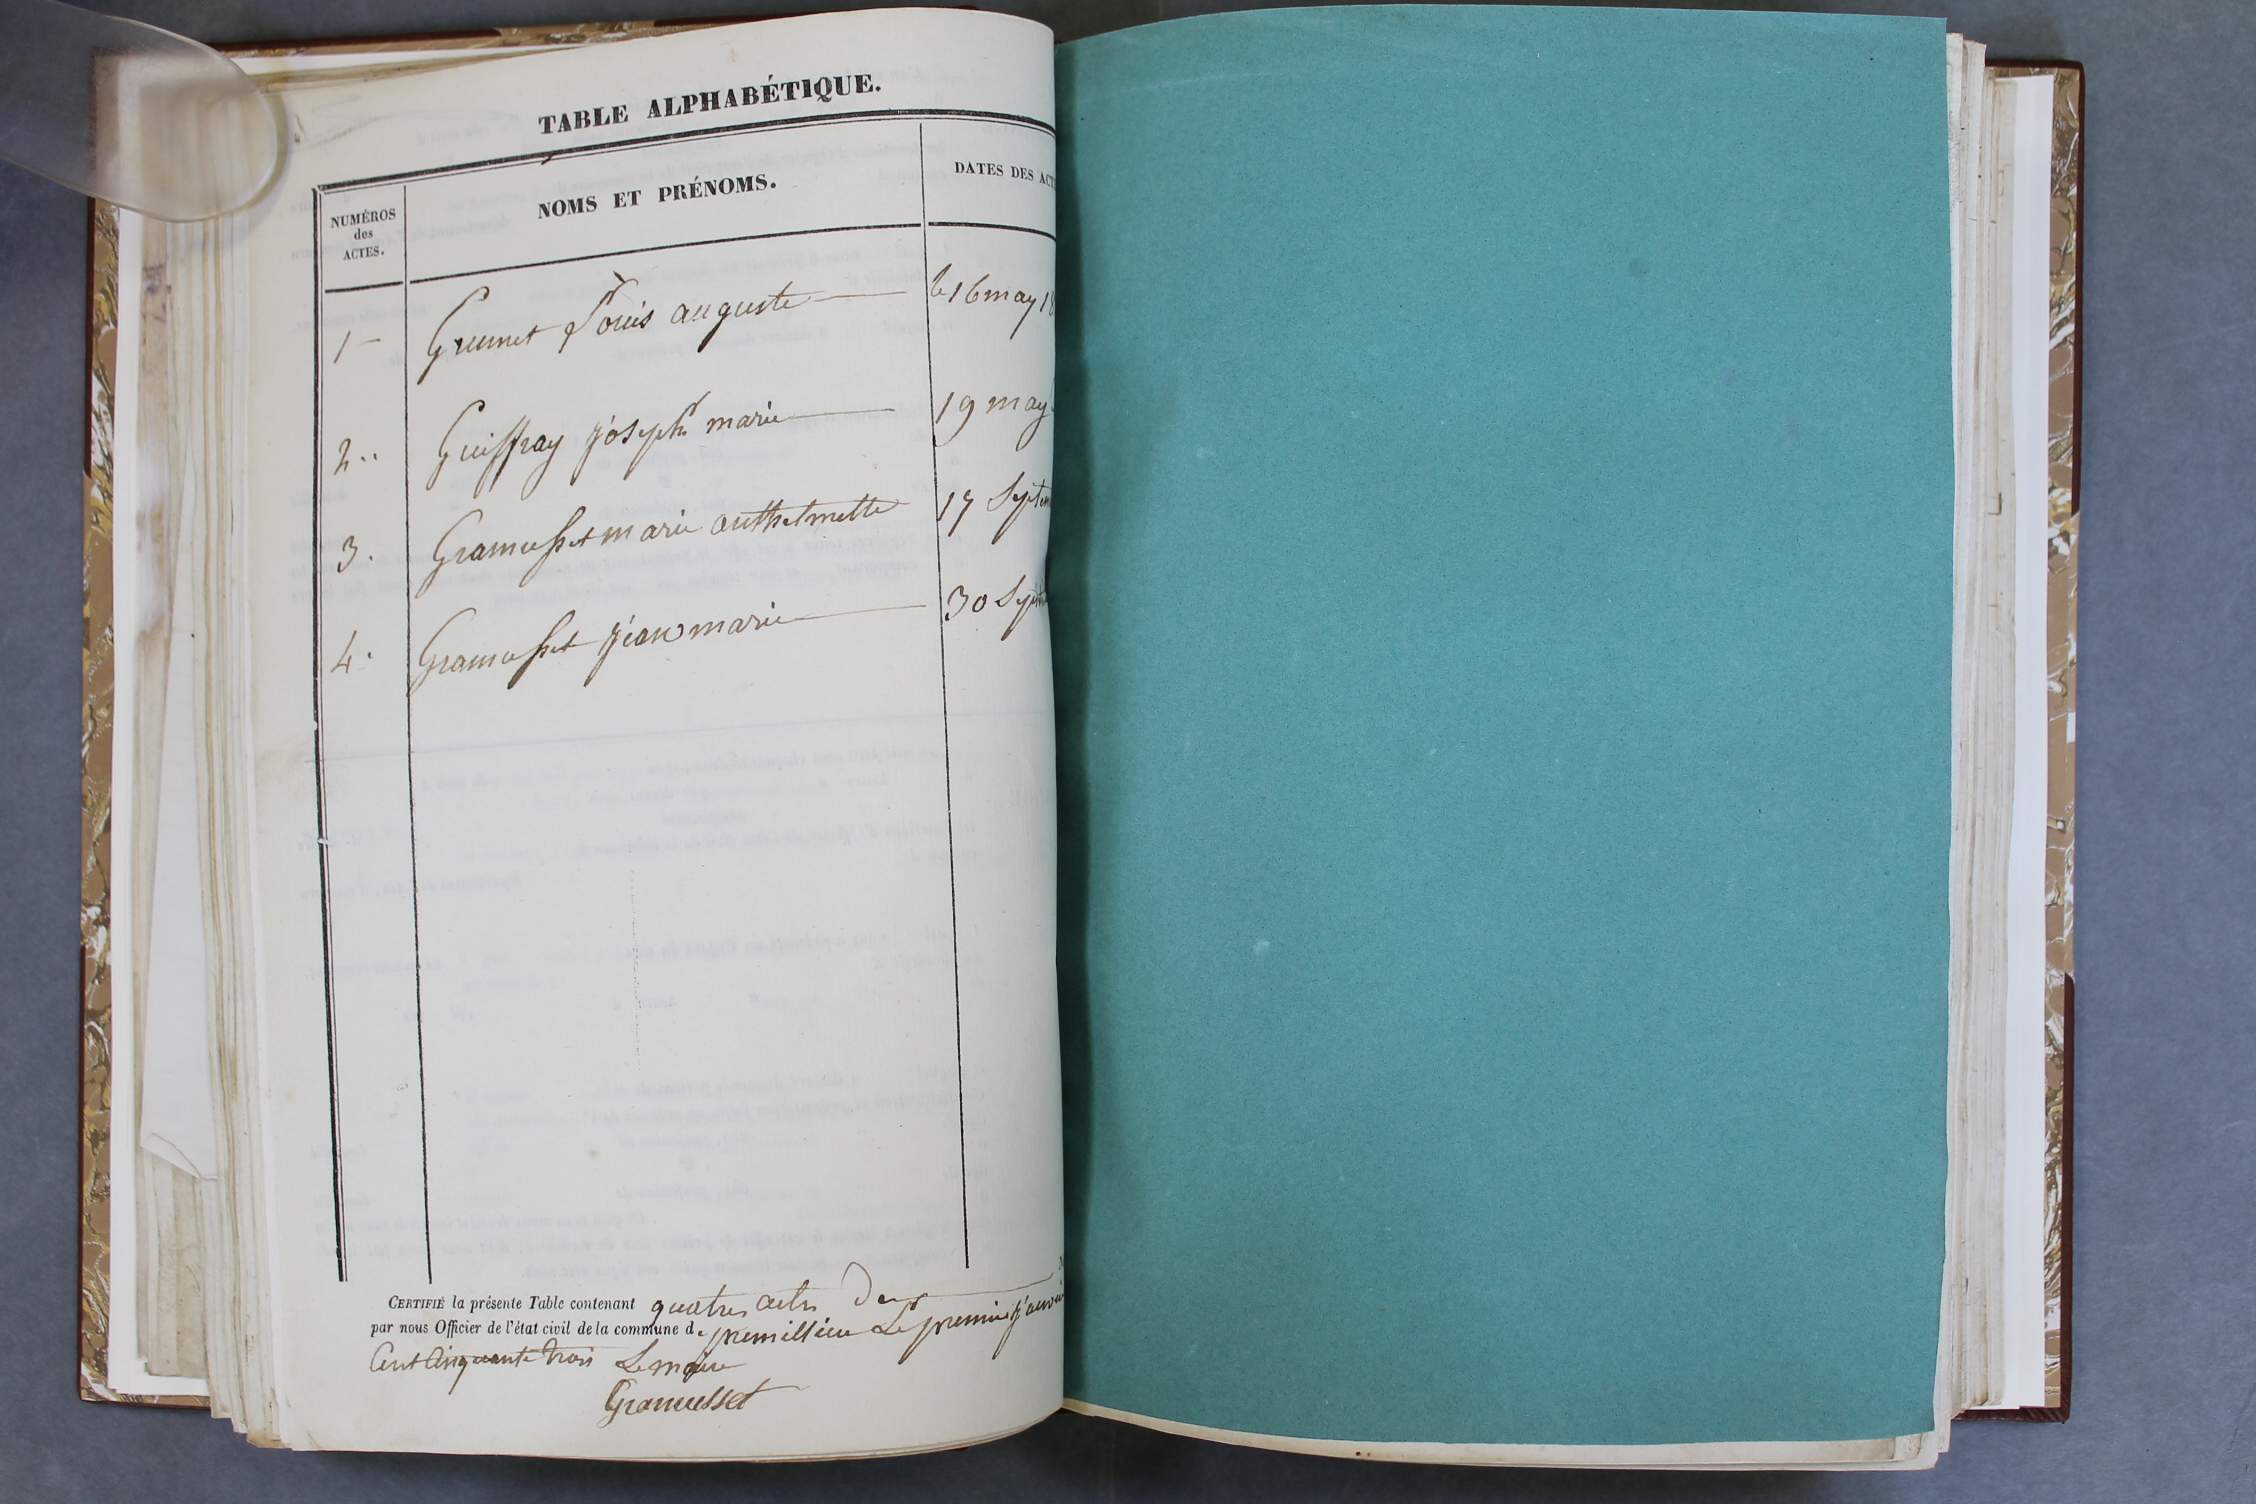 TABLE ALPHABÉTIQUE.
NUMÉROS des ACTES.
NOMS ET PRÉNOMS.
DATES DES ACT
1 - Grumet Louis auguste le 16 may 18
2 .. Guiffray joseph marie 19 may
3. Gramusset marie anthelmette 17 Septem
4. Gramusset jean marie 30 Sept
CERTIFIÉ la présente Table contenant quatres actes
par nous Officier de l'état civil de la commune de premillieu Le premier janvi
Cent Cinquante trois Le maire
Gramusset